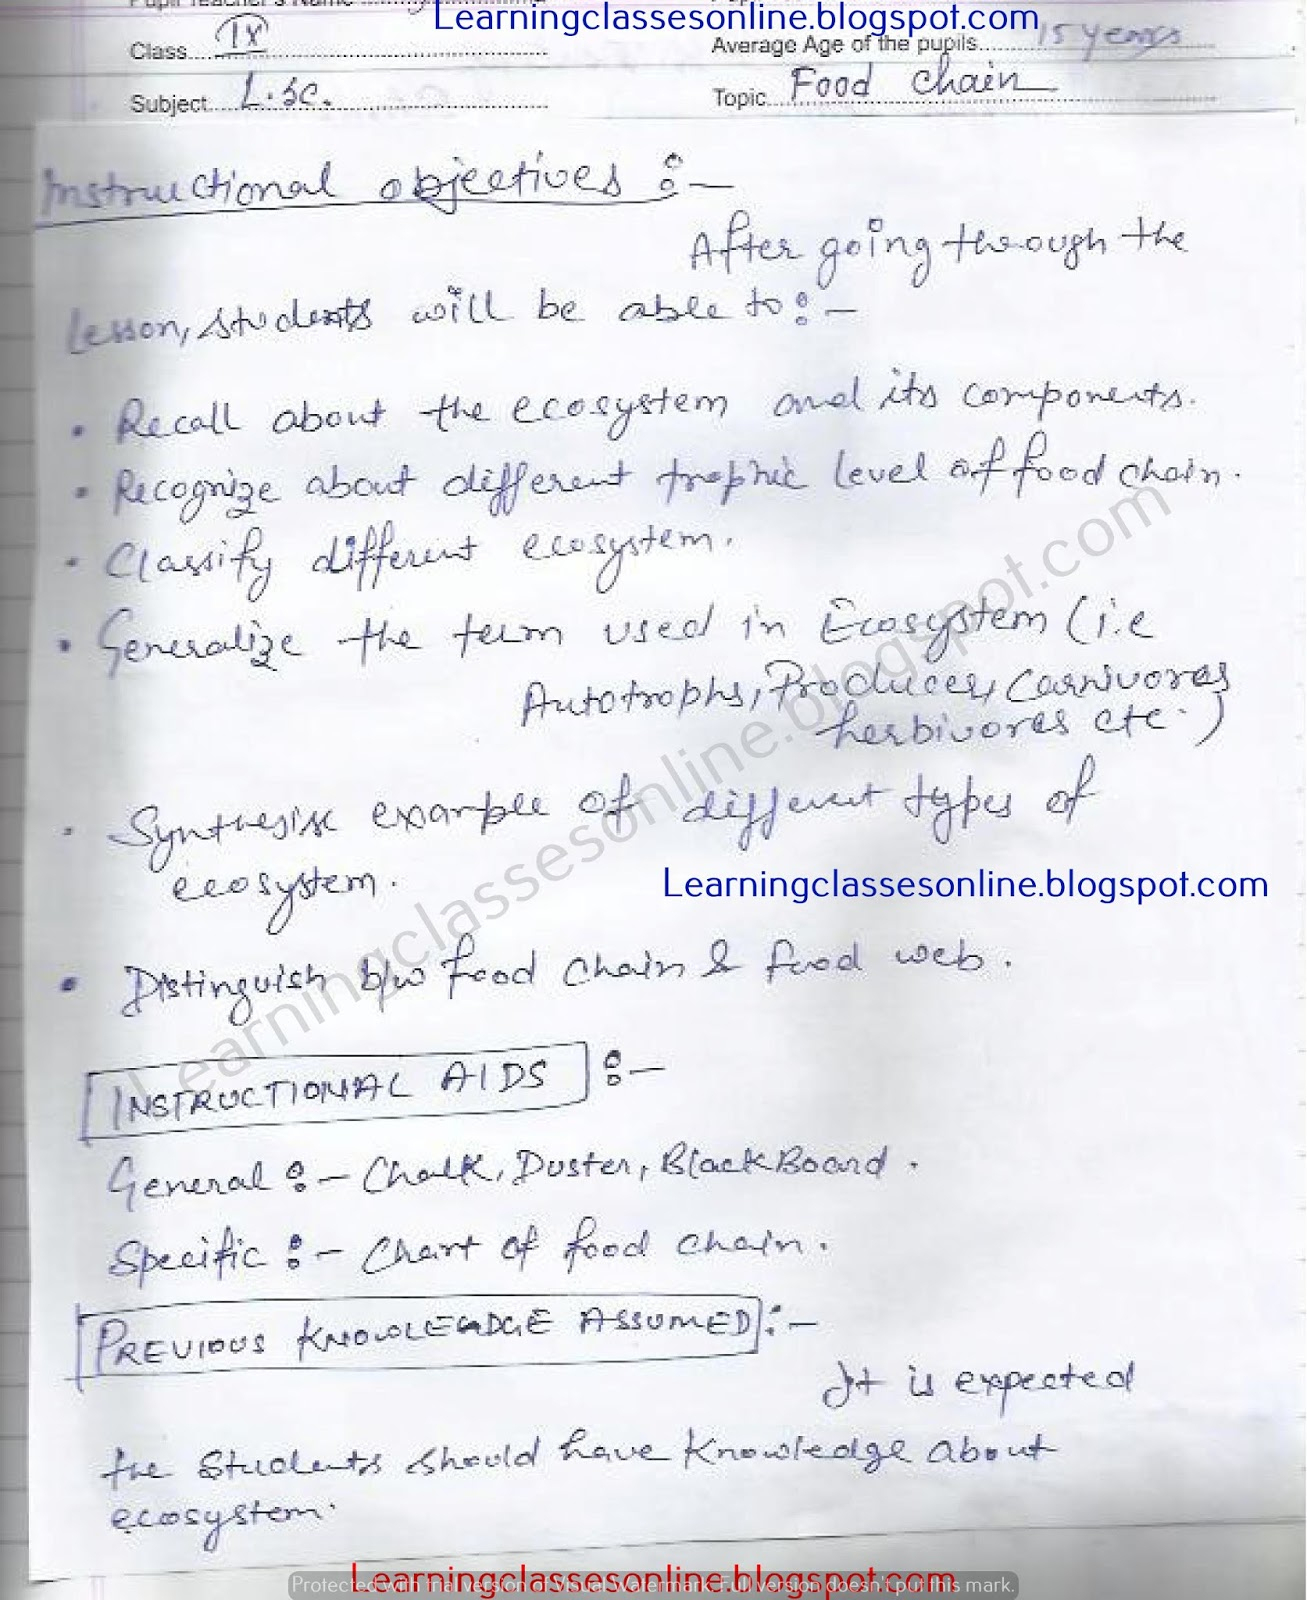 Learningclassesonline.blogspot.com
Class....IX
Average Age of the pupils....15 years
Subject....L.SC.
Topic....Food Chain
Instructional objectives :-
After going through the
Lesson, students will be able to :-
• Recall about the ecosystem and its components.
• Recognize about different trophic level of food chain.
• Classify different ecosystem.
• Generalize the term used in Ecosystem (i.e
Autotrophs, Producer, Carnivores
herbivores etc.)
• Synthesise example of different types of
ecosystem.
Learningclassesonline.blogspot.com
• Distinguish b/w food chain & food web.
Learningclassesonline.blogspot.com
INSTRUCTIONAL AIDS :-
General :- Chalk, Duster, BlackBoard.
Specific :- Chart of food chain.
PREVIOUS KNOWLEDGE ASSUMED :-
It is expected
the Students should have Knowledge about
ecosystem.
Learningclassesonline.blogspot.com
Protected with trial version of Visual Watermark. Full version doesn't put this mark.